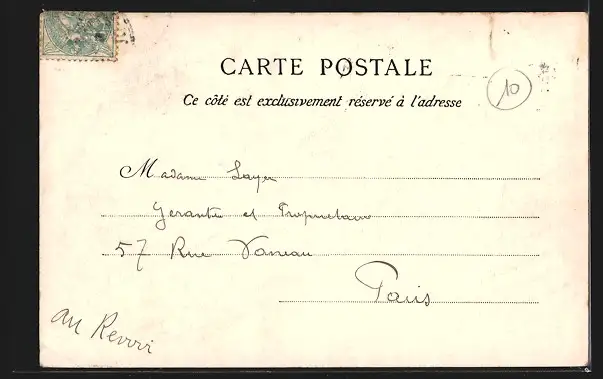 CARTE POSTALE
10
Ce côté est exclusivement réservé à l'adresse
Madame Layer
Gerante et Proprietaire
57 Rue Vaneau
Paris
au Revvvi